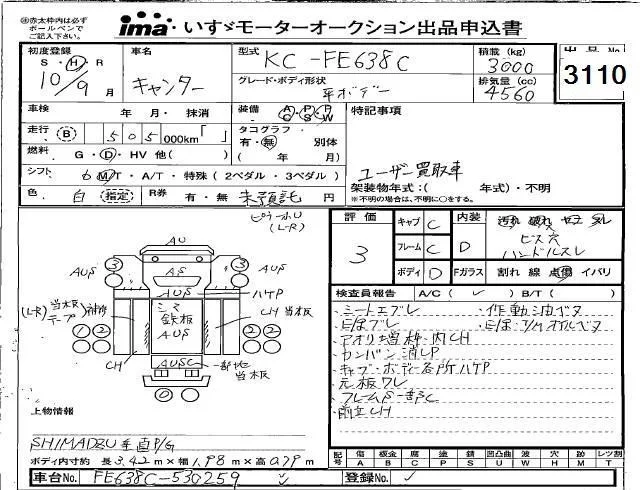 ㊟赤太枠内は必ず
ボールペンで
ご記入下さい。
ima いすゞモーターオークション出品申込書
初度登録
S・H・R
10/9月
車名
キャンター
型式
KC-FE638C
グレード・ボディ形状
平ボデー
積載(kg)
3000
排気量(cc)
4560
出品No.
3110
車検 年・月・抹消
走行 B 505 000km「 」
燃料 G・D・HV 他( )
シフト 6 MT・A/T・特殊(2ペダル・3ペダル)
色 白 指定 R券 有・無 未預託 円
装備 A/C P/S P/W
タコグラフ
有・無 別体
( 年 月)
特記事項
ユーザー買取車
架装物年式:( 年式)・不明
※不明の場合は、不明に○をする。
評価
3
キャブ C
フレーム C
ボディ D
内装 D
汚れ 破れ ヤケ スレ
ビス穴
ハンドルスレ
Fガラス 割れ 線 点傷 イバリ
検査員報告 A/C( ✓ ) B/T( )
シートエブレ
作動油ベタ
アオリ増枠・内CH
カンバン消しP
キャブ・ボディー各所ハケP
フレームS一部C
前立CH
(L-R)
AU
3 3
AUS AS AUS
AUS ハケP
(L-R) 当木板
テープ 補修
シマ
鉄板
AUS
CH 当木板
1 2 2 1
CH
AUSC
一部地
当木板
0
上物情報
SHIMADZU垂直P/G
ボディ内寸約 長3.42m×幅1.98m×高0.79m
車台No. FE638C-530259 ✓
登録No. ✓
記号 傷 板金 腐 塗 錆 凹凸曲 波 穴 跡 レツ割
A B C P S U W H M T